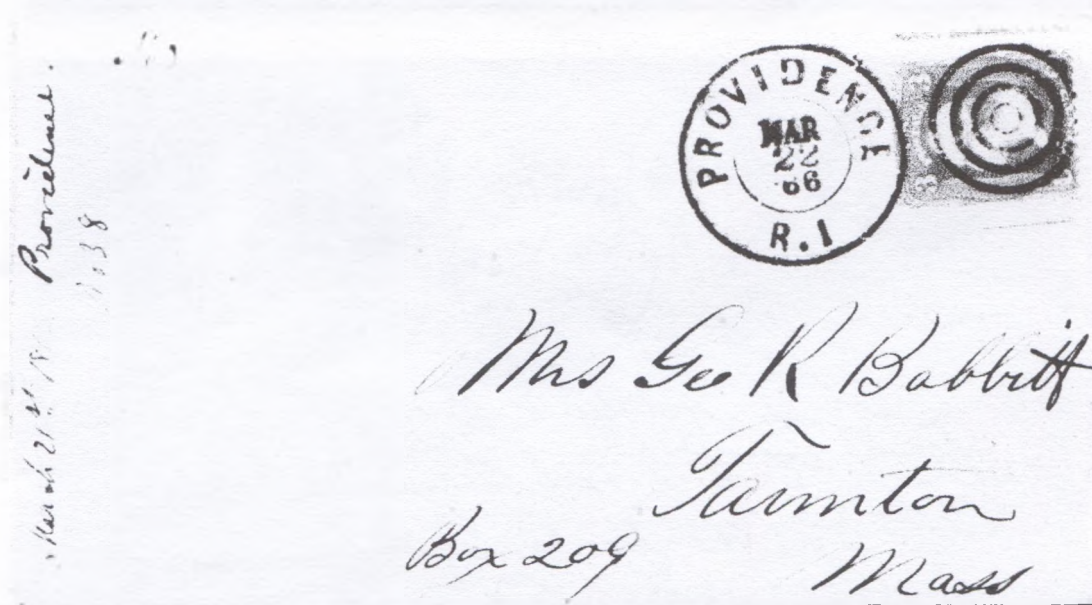 PROVIDENCE
MAR
22
66
R.I
Mrs Geo R Babbitt
Taunton
Box 209
Mass
March 21st
Providence